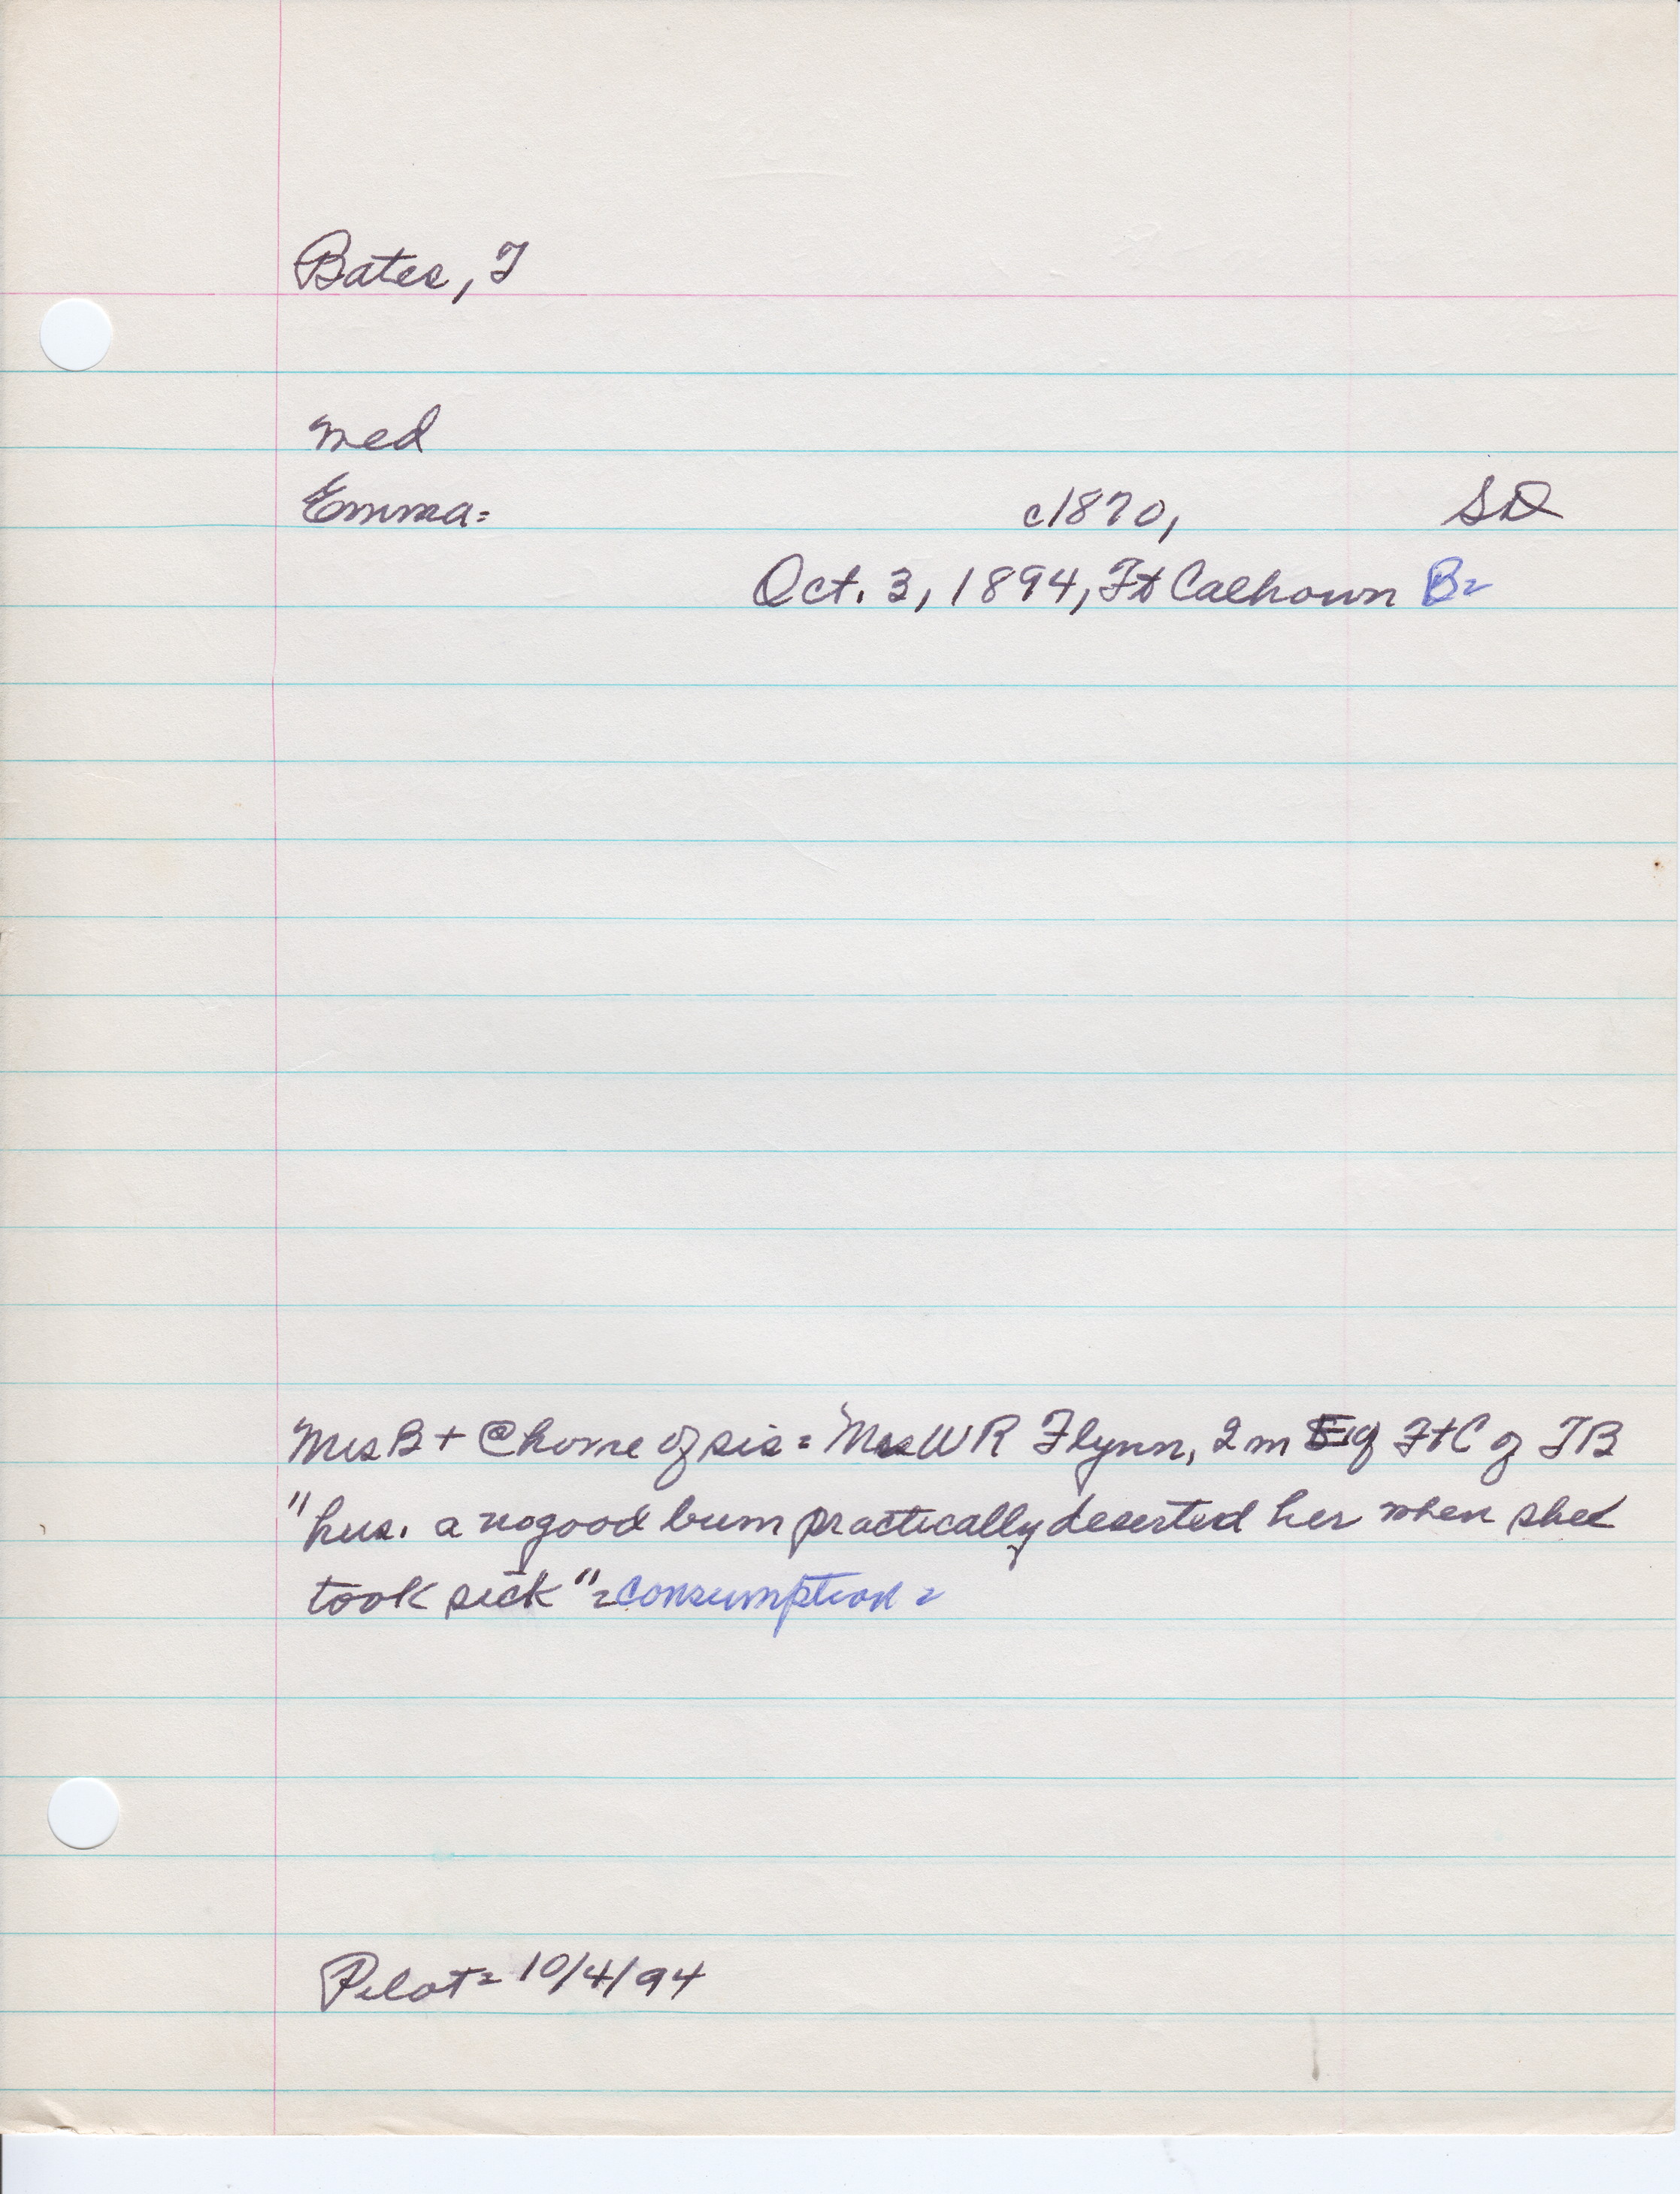 Bates, T
med
Emma= c1870, SD
Oct. 3, 1894, Ft Calhoun B=
Mrs B + @ home of sis = Mrs W R Flynn, 2 m of Ft C of TB
"hus. a nogood bum practically deserted her when she
took sick" = consumption =
Pilot = 10/4/94